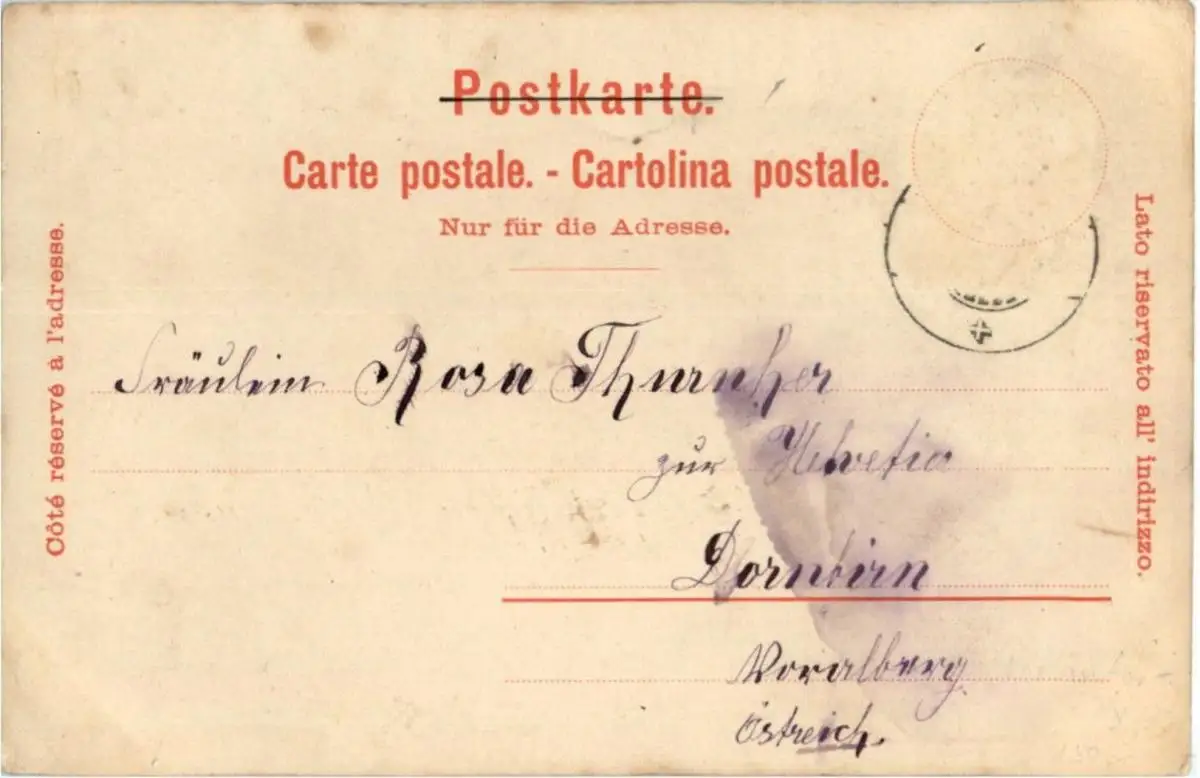 Postkarte.
Carte postale. - Cartolina postale.
Nur für die Adresse.
Côté réservé à l'adresse.
Lato riservato all' indirizzo.
Fräulein Rosa Thurnher
zur Helvetia
Dornbirn
Voralberg
Östreich.